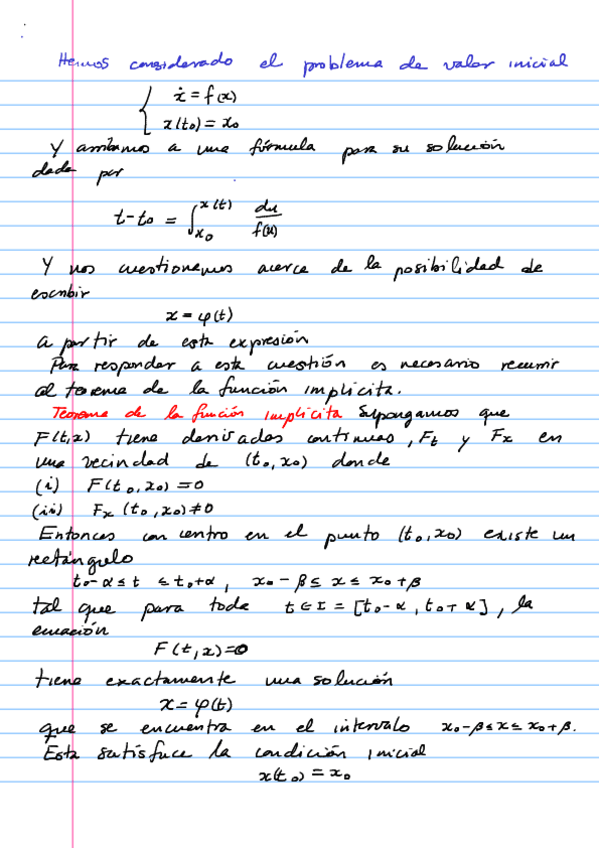 Hemos considerado el problema de valor inicial
{ ẋ = f(x)
x(t₀) = x₀
Y arribamos a una fórmula para su solución
dada por
t-t₀ = ∫_{x₀}^{x(t)} du/f(u)
Y nos cuestionamos acerca de la posibilidad de
escribir
x = φ(t)
a partir de esta expresión
Para responder a esta cuestión es necesario recurrir
al teorema de la función implícita.
Teorema de la función implícita Supongamos que
F(t,x) tiene derivadas continuas, Ft y Fx en
una vecindad de (t₀,x₀) donde
(i) F(t₀,x₀) = 0
(ii) Fx (t₀,x₀) ≠ 0
Entonces con centro en el punto (t₀,x₀) existe un
rectángulo
t₀-α ≤ t ≤ t₀+α, x₀-β ≤ x ≤ x₀+β
tal que para toda t ∈ I = [t₀-α, t₀+α], la
ecuación
F(t,x)=0
tiene exactamente una solución
x = φ(t)
que se encuentra en el intervalo x₀-β ≤ x ≤ x₀+β.
Esta satisface la condición inicial
x(t₀) = x₀